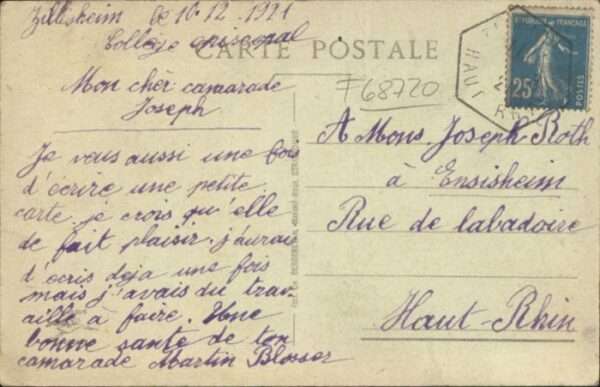 Zillisheim le 10.12.1921
Collège episcopal
CARTE POSTALE
Mon chér camarade
Joseph.
Je vous aussi une fois
d'écrire une petite
carte. je crois qu'elle
de fait plaisir. j'aurais
d'écris deja une fois
mais j'avais du trav-
aille à faire. Une
bonne sante de ton
camarade Martin Blosser
F68720
A Mons. Joseph Roth
à Ensisheim
Rue de labadoire
Haut-Rhin
REPUBLIQUE FRANÇAISE
25
POSTES
HAUT RHIN